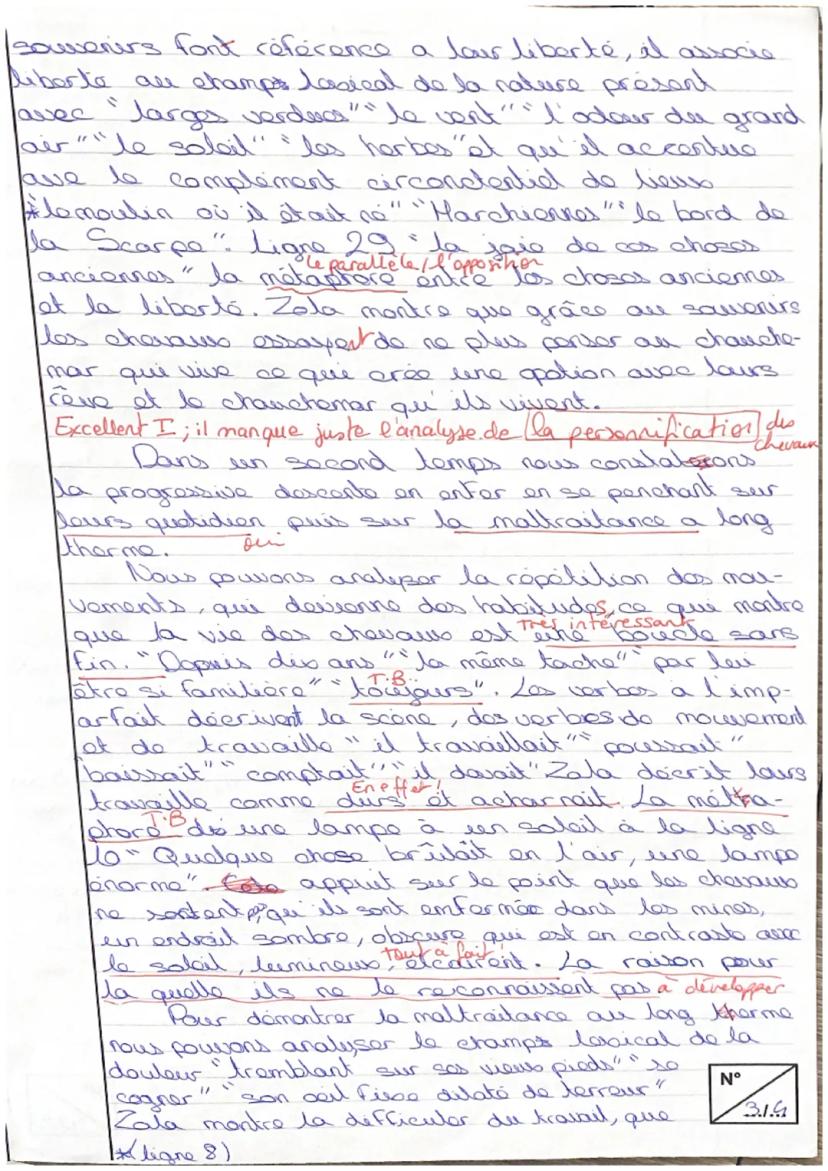 souvenirs font référence a leur liberté, il associe
liberté au champs lexical de la nature présent
avec "larges verdures" "le vent" "l'odeur du grand
air" "le soleil" "les herbes" et qu'il accentue
ave le complément circonctentiel de lieux
*"le moulin où il était né" "Marchiennes" "le bord de
la Scarpe". Ligne 29 "la joie de ces choses
le parallèle / l'opposition
anciennes" la métaphore entre les choses anciennes
et la liberté. Zola montre que grâce au souvenirs
les chevaux essayent de ne plus penser au chauche-
mar qui vive ce qui crée une option avec leurs
rêve et le chauchemar qu'ils vivent.
Excellent I ; il manque juste l'analyse de la personnification des
chevaux
Dans un second temps nous constaterons
la progressive descente en enfer en se penchant sur
leurs quotidien puis sur la maltraitance a long
therme. oui
Nous pouvons analyser la répétition des mou-
vements, qui devienne des habitudes, ce qui montre
Très intéressant
que la vie des chevaux est une boucle sans
fin. "Depuis dix ans" "la même tache" "par lui
T.B.
être si familière" "toujours". Les verbes a l'imp-
arfait décrivent la scène, des verbes de mouvement
et de travaille "il travaillait" "poussait"
"baissait" "comptait" "il devait" Zola décrit leurs
En effet !
travaille comme durs et acharnait. La méta-
T.B
phore de une lampe à un soleil à la ligne
10 "Quelque chose brûlait en l'air, une lampe
énorme". appuit sur le point que les chevaux
ne sortent pas qu'ils sont enfermée dans les mines,
un endroit sombre, obscure qui est en contraste avec
tout à fait !
le soleil, lumineux, éclairent. La raison pour
la quelle ils ne le reconnaissent pas à développer
Pour démontrer la maltraitance au long therme
nous pouvons analyser le champs lexical de la
douleur "tremblant sur ses vieux pieds" "se
cogner" "son œil fixe dilaté de terreur"
Zola montre la difficulter du travail, que
*(ligne 8)
N°
3.1.4